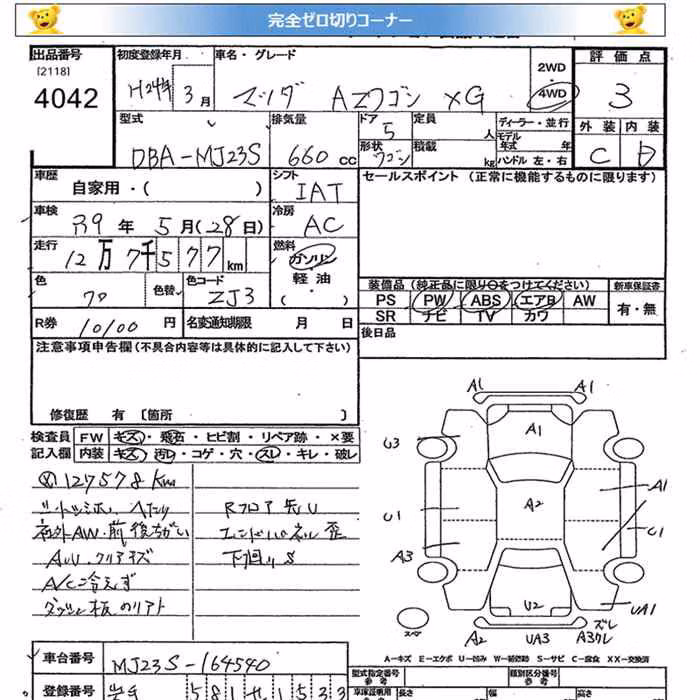 完全ゼロ切りコーナー
出品番号
[2118]
4042
初度登録年月
H24年 3月
車名・グレード
マツダ AZワゴン XG
2WD
4WD
評価点
3
外装 内装
C D
型式
DBA-MJ23S
排気量
660 cc
ドア 5
形状 ワゴン
定員 人
積載 kg
ディーラー・並行
モデル年式 年
ハンドル 左・右
車歴
自家用・( )
シフト
IAT
車検
R9年 5月(28日)
冷房
AC
走行
12万7千577km
燃料
ガソリン
軽油
・( )
色
色替
色コード
ZJ3
R券 10100 円
名変通知期限 月 日
セールスポイント (正常に機能するものに限ります)
装備品 (純正品に限り○をつけてください)
PS PW ABS エアB AW
SR ナビ TV カワ
新車保証書
有・無
後日品
注意事項申告欄 (不具合内容等は具体的に記入して下さい)
修復歴 有 [箇所 ]
検査員 記入欄
FW キズ・飛石・ヒビ割・リペア跡・×要
内装 キズ・汚レ・コゲ・穴・スレ・キレ・破レ
127578Km
シートシミ・ヘタリ
社外AW・前後ちがい
AW・クリアキズ
A/C冷えず
ダッシュ板のリアト
Rフロア矢U
エンドパネル歪
下回りS
A1 A1
A1
U3
A2
A1
U1
C1
A3
U2
UA1
スペア
A2 UA3 A3クレ
ズレ
A-キズ E-エクボ U-凹み W-補修跡 S-サビ C-腐食 XX-交換済
車台番号
MJ23S-164540
登録番号
型式指定番号 参考
類別区分番号 参考
長さ 幅 高さ